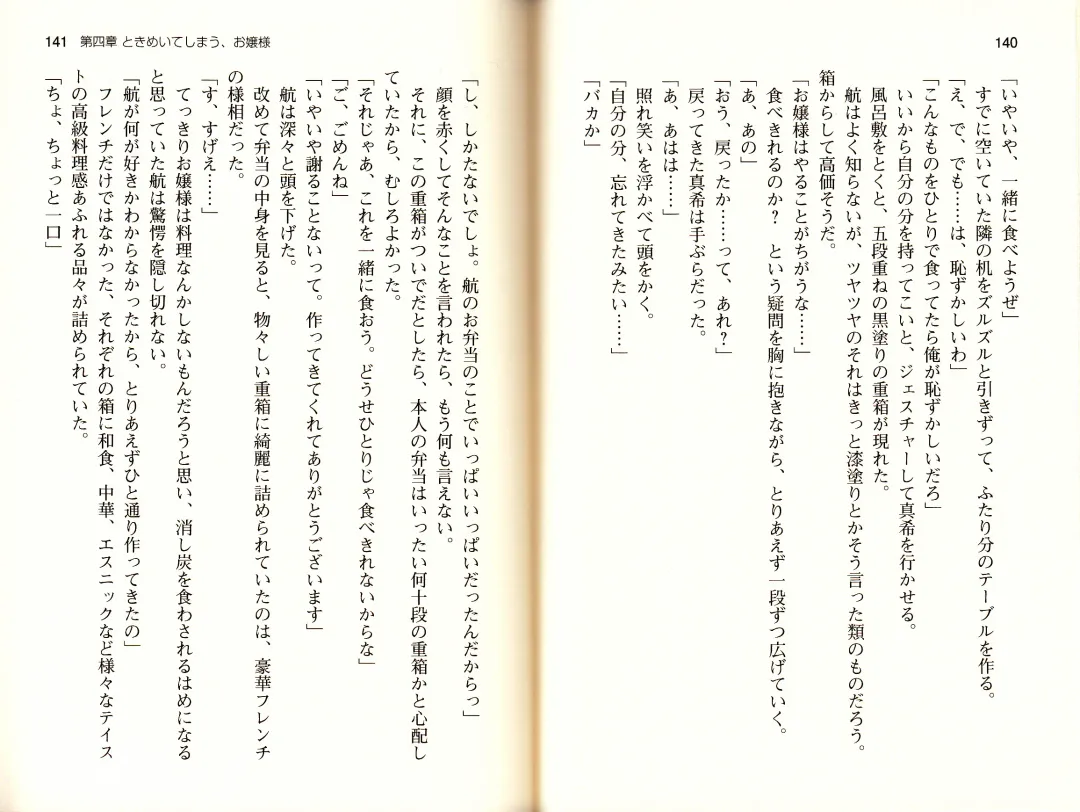 140
「いやいや、一緒に食べようぜ」
すでに空いていた隣の机をズルズルと引きずって、ふたり分のテーブルを作る。
「え、で、でも……は、恥ずかしいわ」
「こんなものをひとりで食ってたら俺が恥ずかしいだろ」
いいから自分の分を持ってこいと、ジェスチャーして真希を行かせる。
風呂敷をとくと、五段重ねの黒塗りの重箱が現れた。
航はよく知らないが、ツヤツヤのそれはきっと漆塗りとかそう言った類のものだろう。
箱からして高価そうだ。
「お嬢様はやることがちがうな……」
食べきれるのか？　という疑問を胸に抱きながら、とりあえず一段ずつ広げていく。
「あ、あの」
「おう、戻ったか……って、あれ？」
戻ってきた真希は手ぶらだった。
「あ、あはは……」
照れ笑いを浮かべて頭をかく。
「自分の分、忘れてきたみたい……」
「バカか」
141　第四章 ときめいてしまう、お嬢様
「し、しかたないでしょ。航のお弁当のことでいっぱいいっぱいだったんだからっ」
顔を赤くしてそんなことを言われたら、もう何も言えない。
それに、この重箱がついでだとしたら、本人の弁当はいったい何十段の重箱かと心配し
ていたから、むしろよかった。
「それじゃあ、これを一緒に食おう。どうせひとりじゃ食べきれないからな」
「ご、ごめんね」
「いやいや謝ることないって。作ってきてくれてありがとうございます」
航は深々と頭を下げた。
改めて弁当の中身を見ると、物々しい重箱に綺麗に詰められていたのは、豪華フレンチ
の様相だった。
「す、すげえ……」
てっきりお嬢様は料理なんかしないもんだろうと思い、消し炭を食わされるはめになる
と思っていた航は驚愕を隠し切れない。
「航が何が好きかわからなかったから、とりあえずひと通り作ってきたの」
フレンチだけではなかった、それぞれの箱に和食、中華、エスニックなど様々なテイス
トの高級料理感あふれる品々が詰められていた。
「ちょ、ちょっと一口」